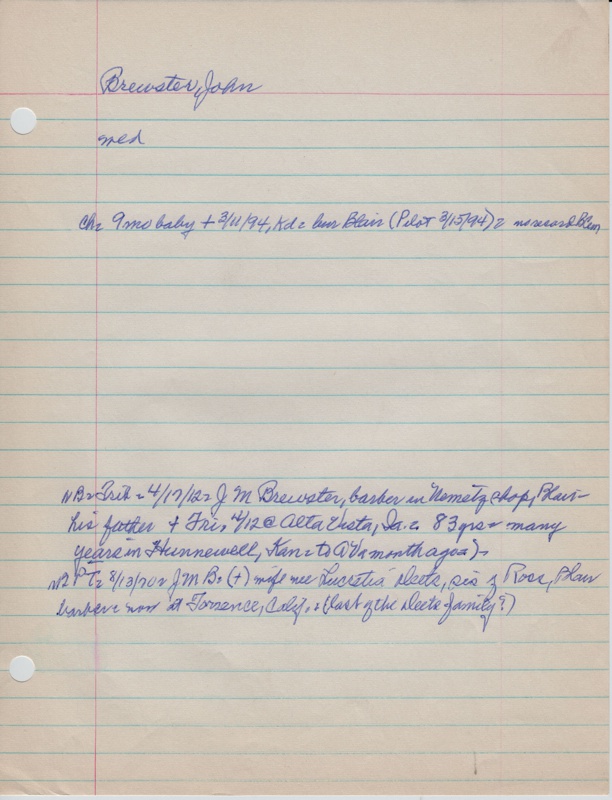 Brewster, John
med
Ch= 9 mo baby + 3/11/94, Kd= bur Blair (Pilot 3/15/94)= no record Blair
N B= Trib = 4/17/12= J M Brewster, barber in Nemetz shop, Blair-
his father + Fri, 4/12 @ Alta Vista, Ia = 83 yrs = many
years in Hunnewell, Kan = to AV a month ago=)-
N2 PT= 8/13/20= J M B= (+) wife nee Lucestia Deets, sis of Ross, Blair
barber = now at Torrence, Calif. = (last of the Deets family?)